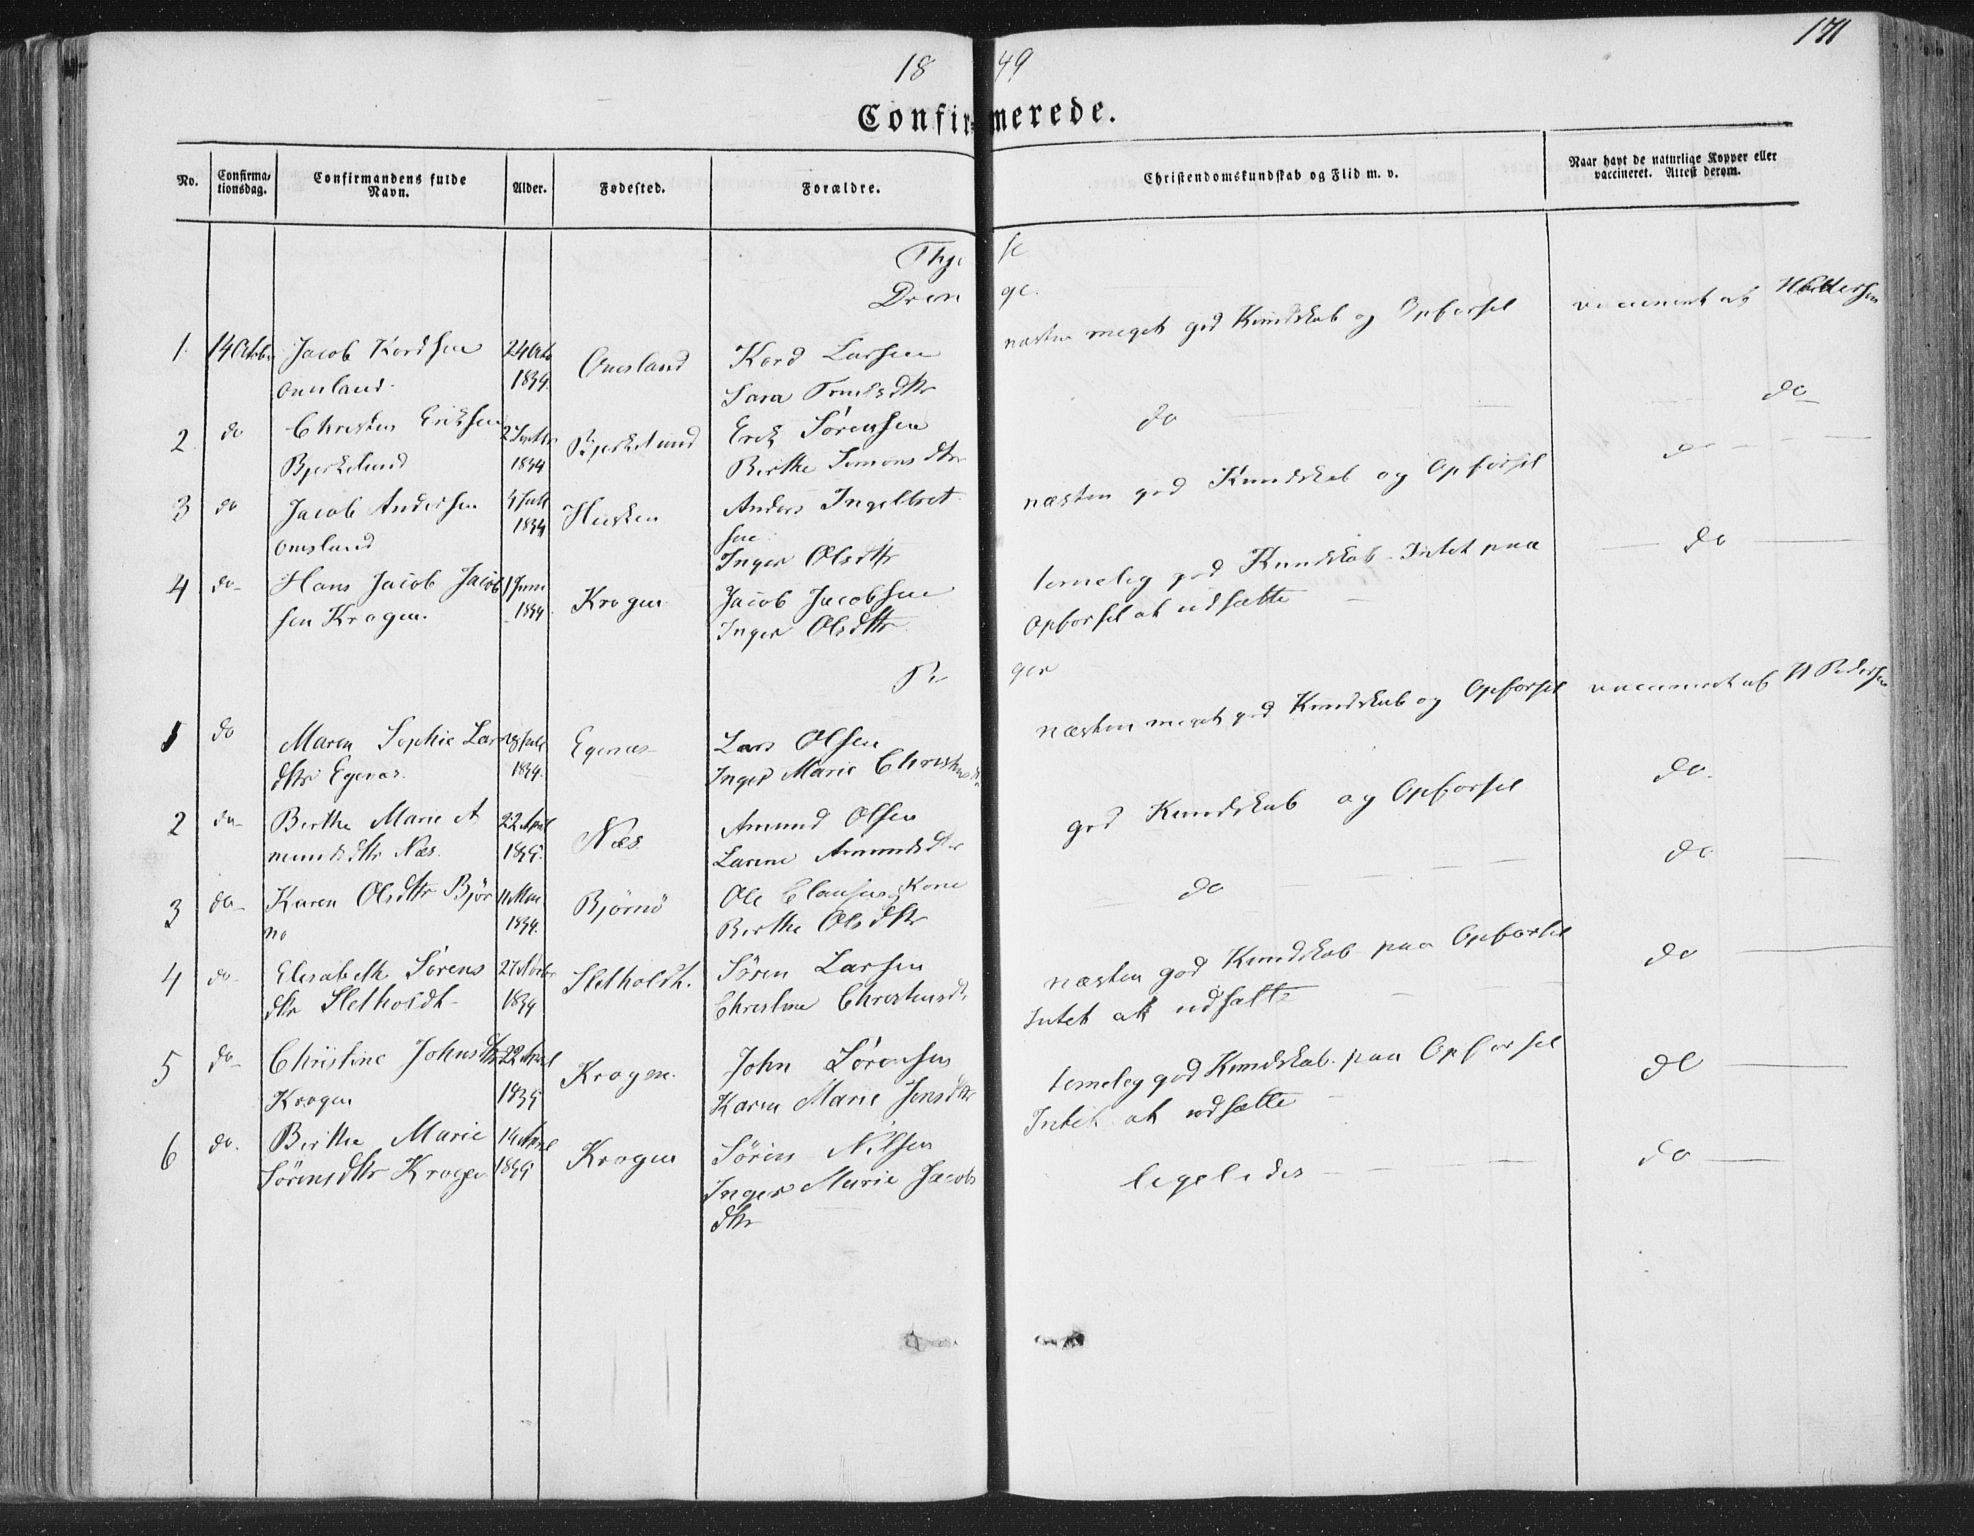 171
18 49
Confirmerede.
No.
Confirma-
tionsdag.
Confirmandens fulde
Navn.
Alder.
Fødested.
Forældre.
Christendomskundskab og Flid m. v.
Naar havt de naturlige Kopper eller
vaccineret. Attest derom.
Drenge.
1. 14 Octbr Jacob Kordsen 24 Octb Omsland Kord Larsen næsten meget god Kundskab og Opførsel
Omsland. 1834. Sara
2 do Christen Eriksen 2 Septbr Bjerkelund Erik Sørensen do do
Bjerkelund 1834 Berthe Simonsdtr
3 do Jacob Andersen 4 Juli Anders Ingelbret næsten god Kundskab og Opførsel do
Omsland 1834 sen
Inger Olsdtr
4 do Hans Jacob Jacob 1 Juni Krogen Jacob Jacobsen temelig god Kundskab - Intet paa do
sen Krogen. 1834 Inger Olsdttr Opførsel at udsætte
Piger
1 do Maren Sophie Lars Juli Egenæs Lars Olsen næsten meget god Kundskab og Opførsel vaccineret af H Pedersen
dtr Egenæs. 1834. Inger Marie
2 do Berthe Marie A 22 April Næs. Amund Olsen god Kundskab og Opførsel do
mundsdtr Næs. 1835. Larine Amundsdtr
3 do Karen Olsdttr Bjør 1834. Bjørnø Ole Clausen Kone do do
nø Berthe Olsdtr
4 do Elisabeth Sørens 1834 Sletholdt. Søren Larsen næsten god Kundskab paa Opførsel do
dtr Sletholdt Christine Christensdt. Intet at udsætte
5 do Christine Johnsdtr 22 April Krogen. John Sørensen temelig god Kundskab. paa Opførsel do
Krogen 1835 Karen Marie Jensdtr Intet at udsætte
6 do. Berthe Marie 14 April Krogen Søren Nilsen ligeledes do
Sørensdtr Krogen 1835 Inger Marie Jacobs
dtr